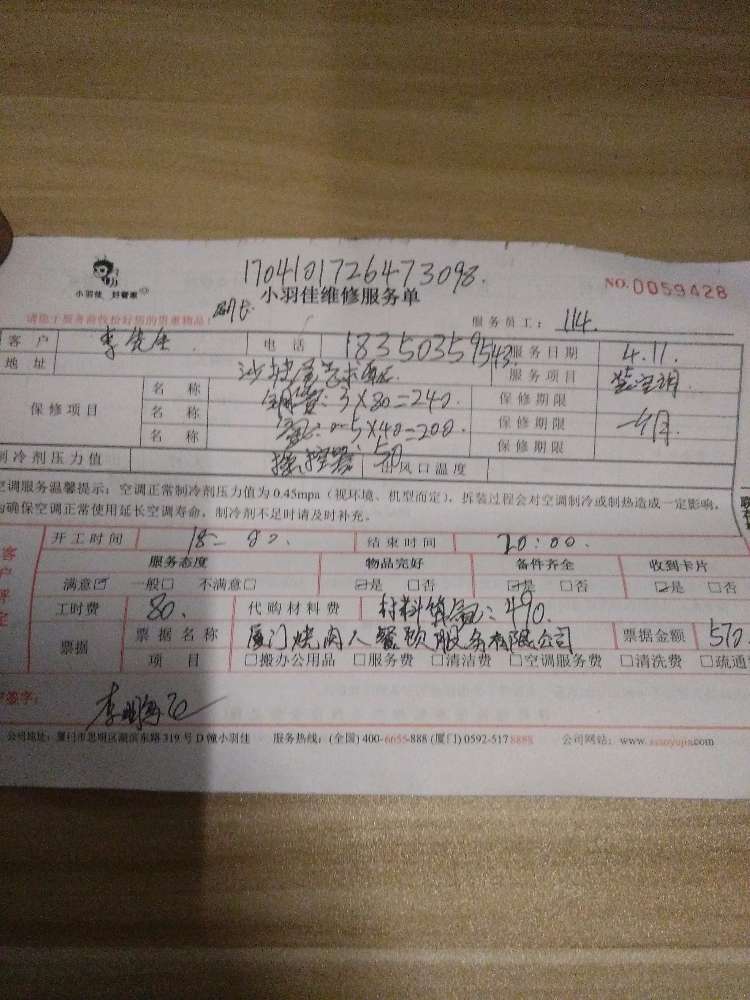 1704101726473098.
小羽佳 好管家
小羽佳维修服务单
NO.0059428
请您于服务前收拾好您的贵重物品!
服务员工: 114.
客户 李先生 电话 18350359543 服务日期 4.11.
地址 服务项目
保修项目 名称 3×80=240. 保修期限
名称 5×40=200. 保修期限 一个月.
名称 遥控器: 50 保修期限
制冷剂压力值 出风口温度
空调服务温馨提示:空调正常制冷剂压力值为0.45mpa(视环境、机型而定),拆装过程会对空调制冷或制热造成一定影响,
为确保空调正常使用延长空调寿命,制冷剂不足时请及时补充。
开工时间 结束时间 20:00.
服务态度 物品完好 备件齐全 收到卡片
满意☑ 一般□ 不满意□ ☑是 □否 ☑是 □否 ☑是 □否
工时费 80. 代购材料费 490.
票据 票据名称 厦门烧肉人餐饮服务有限公司 票据金额 570
项目 □搬办公用品 □服务费 □清洁费 □空调服务费 □清洗费 □疏通
签字:
公司地址:厦门市思明区湖滨东路319号D幢小羽佳 服务热线:(全国)400-6655-888 (厦门)0592-5178888 公司网站:www.xiaoyujia.com